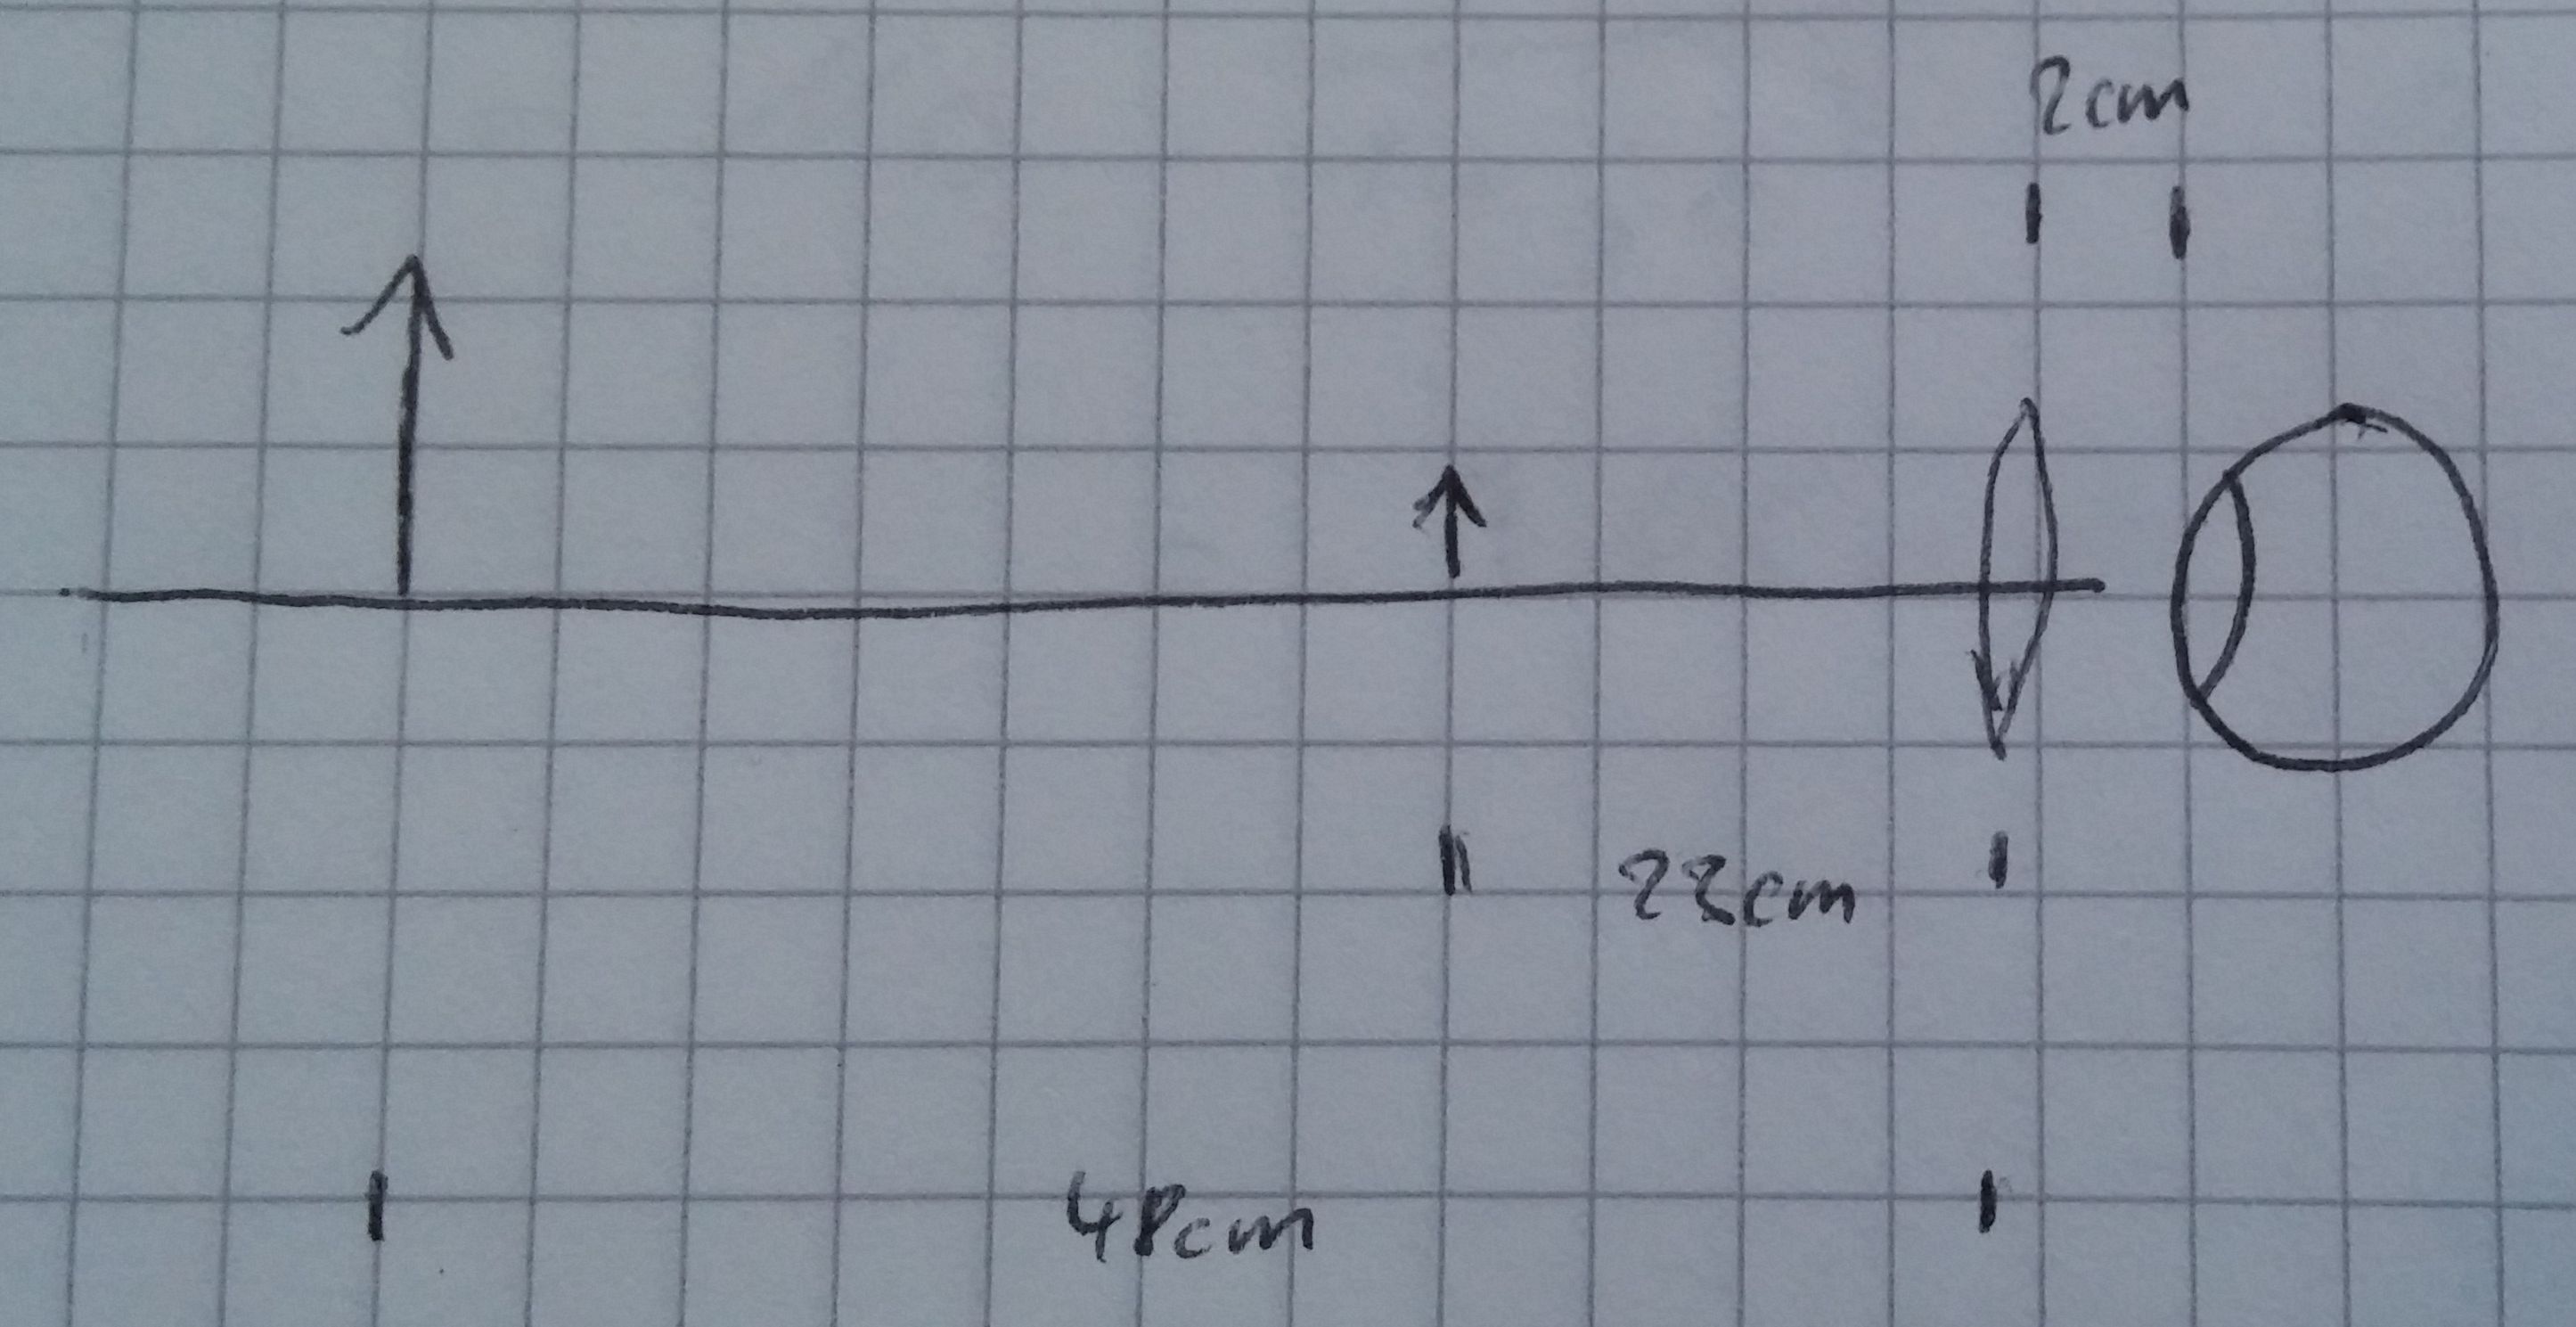 2cm
23cm
48cm